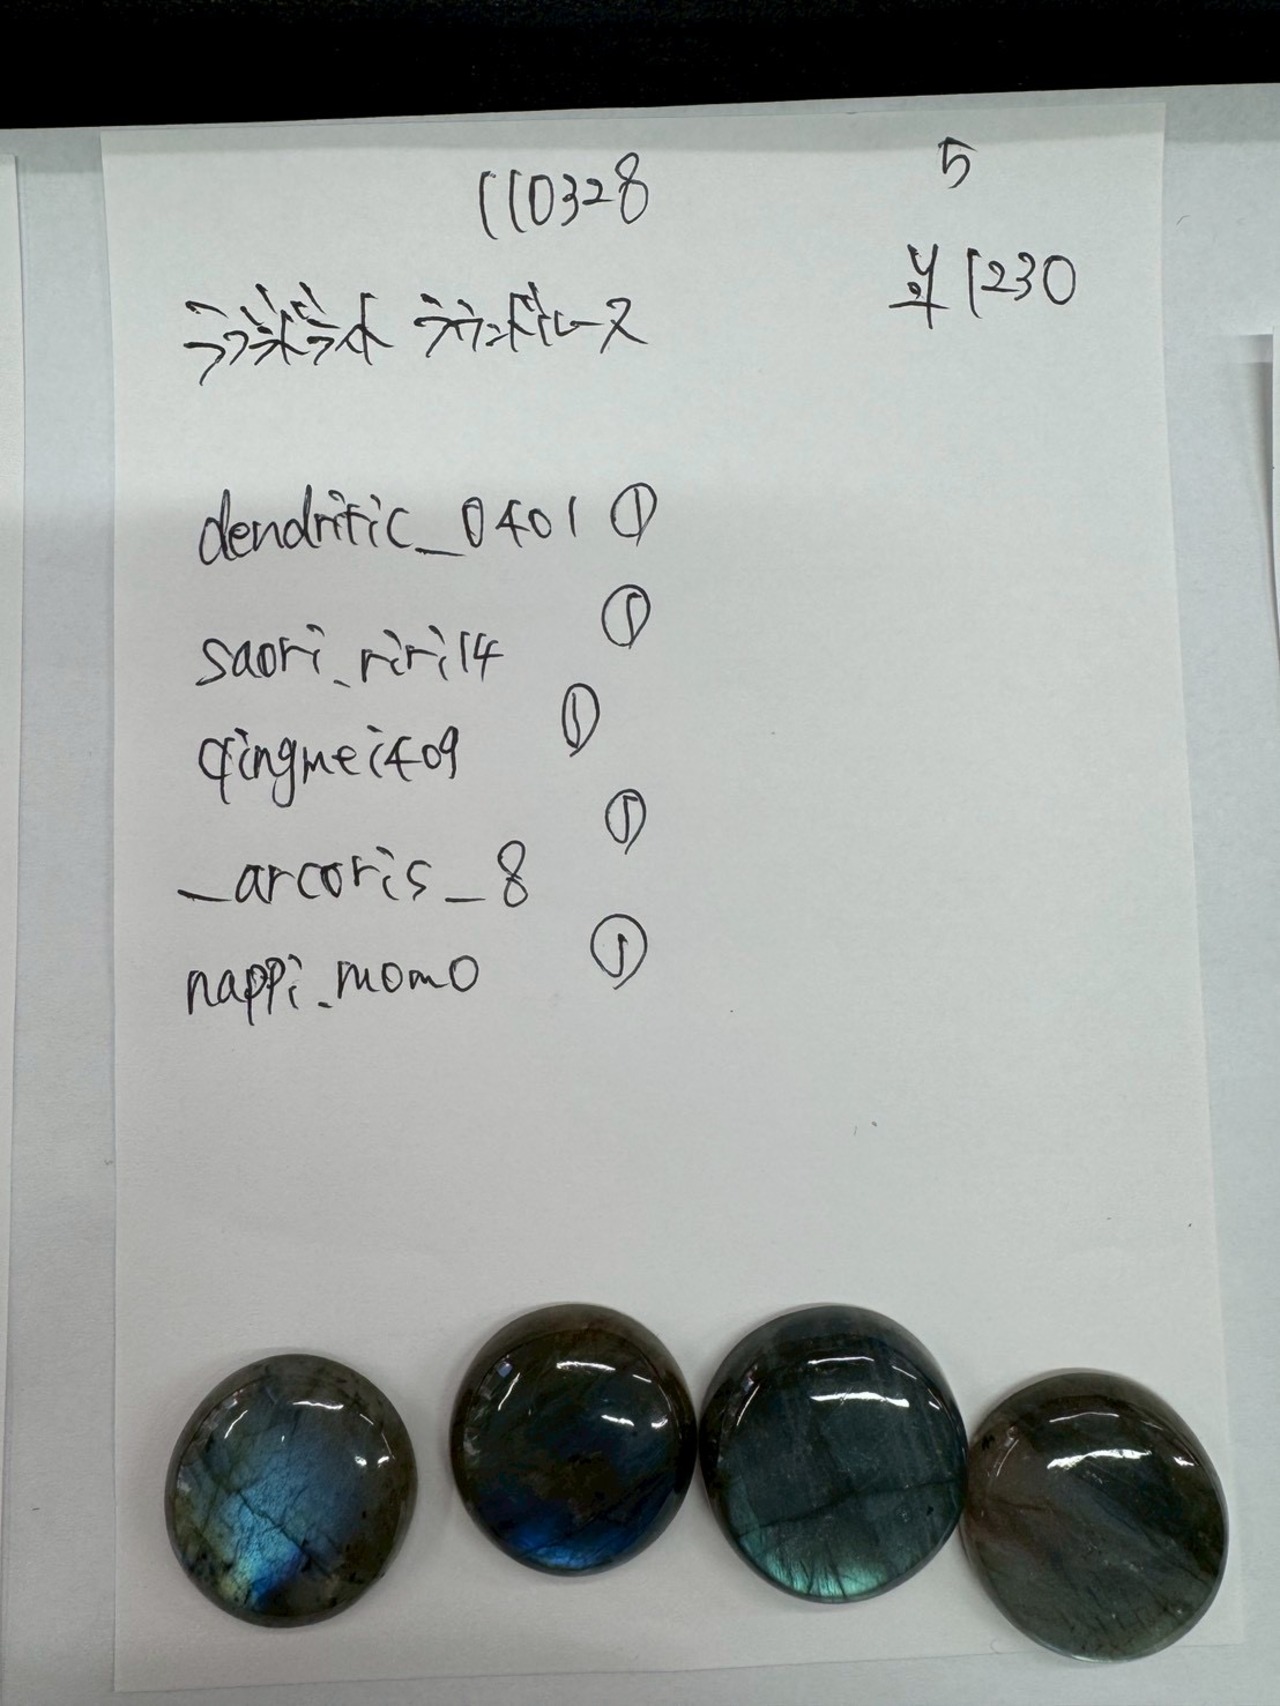 110328
5
¥1230
ラブラドライト ラウンドルース
dendritic_0401 ①
saori_riri14 ①
qingmei409 ①
_arcoris_8 ①
nappi_momo ①